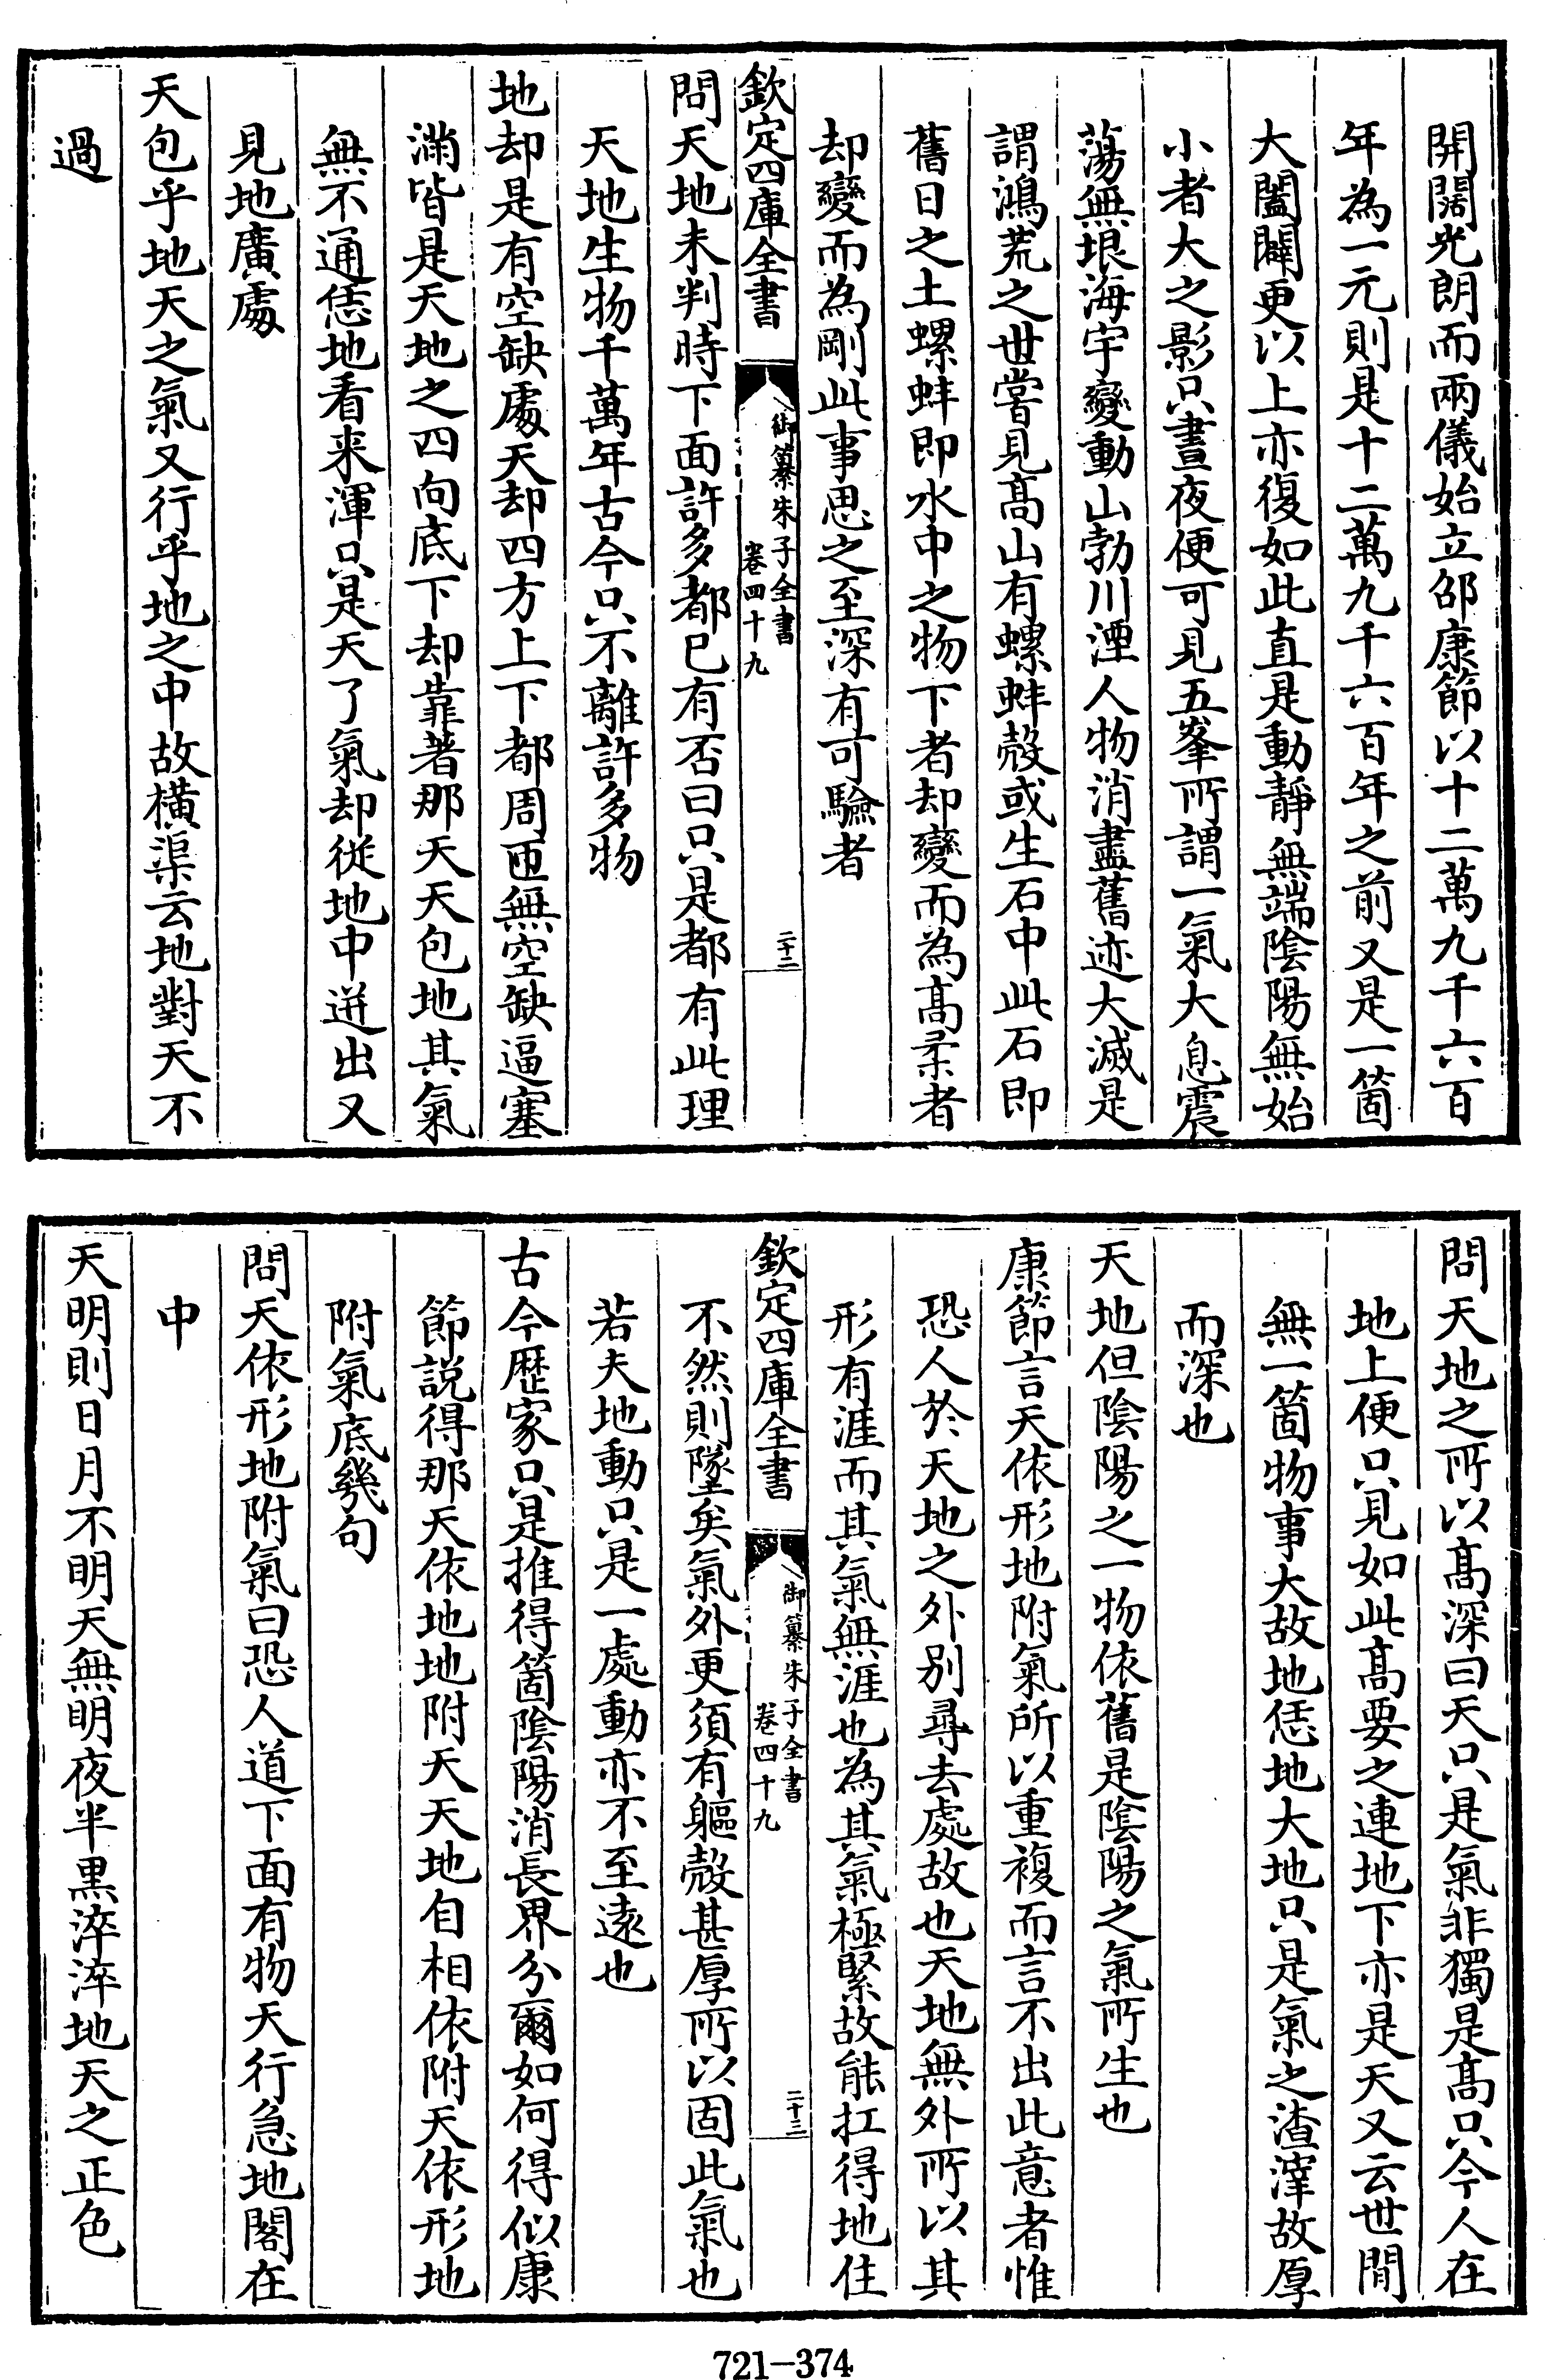 開闊光朗而兩儀始立邵康節以十二萬九千六百
年為一元則是十二萬九千六百年之前又是一箇
大闔闢更以上亦復如此直是動靜無端陰陽無始
小者大之影只晝夜便可見五峯所謂一氣大息震
蕩無垠海宇變動山勃川湮人物消盡舊迹大滅是
謂鴻荒之世嘗見髙山有螺蚌殻或生石中此石即
舊日之土螺蚌即水中之物下者却變而為髙柔者
却變而為剛此事思之至深有可驗者
欽定四庫全書
御纂朱子全書
卷四十九
二十二
問天地未判時下面許多都已有否曰只是都有此理
天地生物千萬年古今只不離許多物
地却是有空缺處天却四方上下都周匝無空缺逼塞
滿皆是天地之四向底下却靠著那天天包地其氣
無不通恁地看来渾只是天了氣却從地中迸出又
見地廣處
天包乎地天之氣又行乎地之中故橫渠云地對天不
過
問天地之所以髙深曰天只是氣非獨是髙只今人在
地上便只見如此髙要之連地下亦是天又云世間
無一箇物事大故地恁地大地只是氣之渣滓故厚
而深也
天地但陰陽之一物依舊是陰陽之氣所生也
康節言天依形地附氣所以重複而言不出此意者惟
恐人於天地之外别尋去處故也天地無外所以其
形有涯而其氣無涯也為其氣極緊故能扛得地住
欽定四庫全書
御纂朱子全書
卷四十九
二十三
不然則墜矣氣外更須有軀殻甚厚所以固此氣也
若夫地動只是一處動亦不至遠也
古今歷家只是推得箇陰陽消長界分爾如何得似康
節説得那天依地地附天天地自相依附天依形地
附氣底幾句
問天依形地附氣曰恐人道下面有物天行急地閣在
中
天明則日月不明天無明夜半黒淬淬地天之正色
721-374